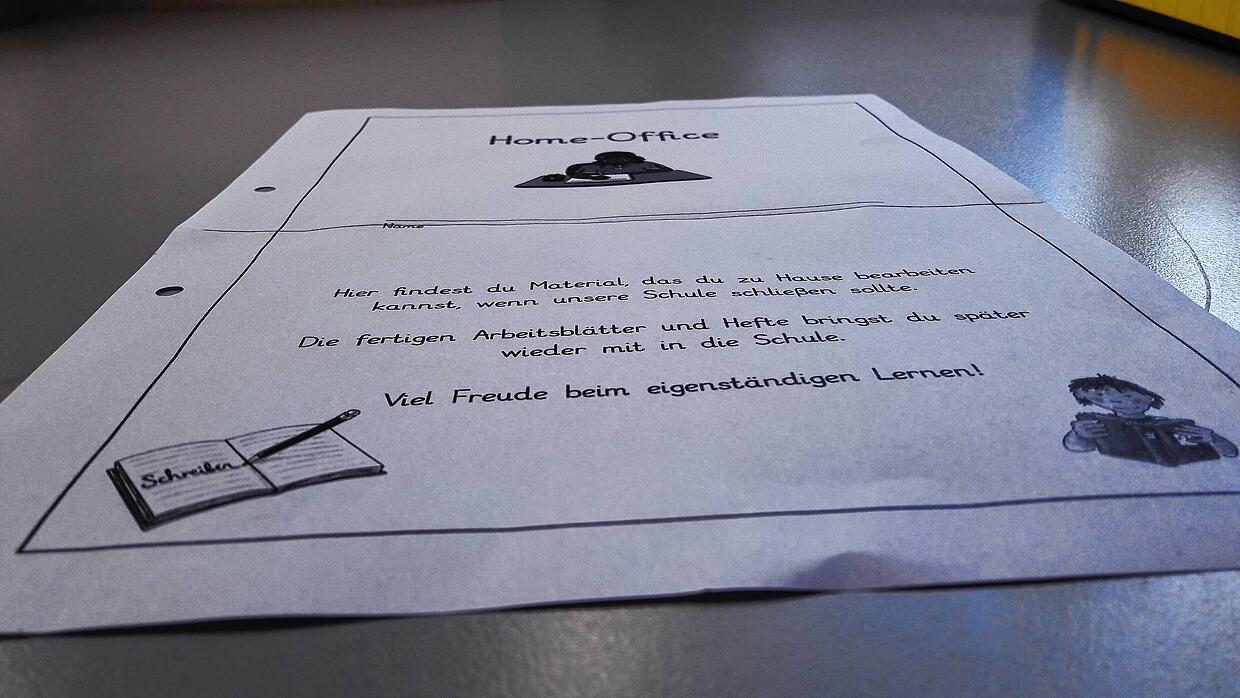 Home-Office
Name
Hier findest du Material, das du zu Hause bearbeiten
kannst, wenn unsere Schule schließen sollte.
Die fertigen Arbeitsblätter und Hefte bringst du später
wieder mit in die Schule.
Viel Freude beim eigenständigen Lernen!
Schreiben